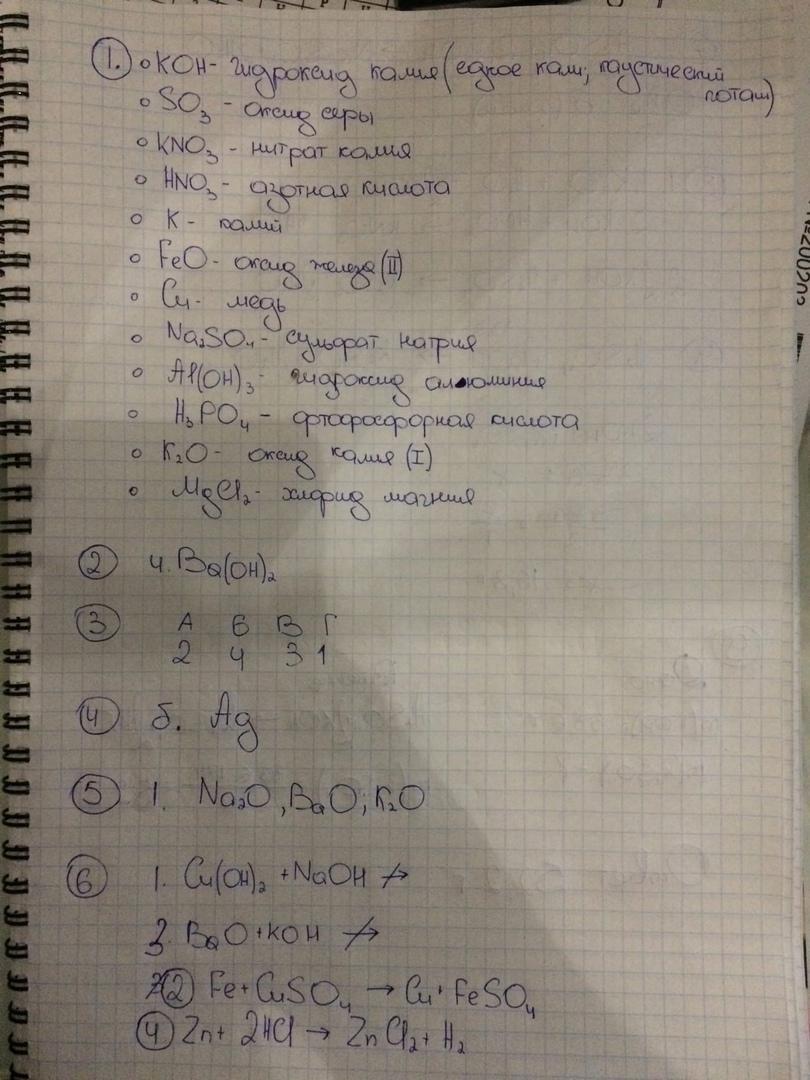 1. КОН - гидроксид калия (едкое кали; каустический
поташ)
SO3 - оксид серы
KNO3 - нитрат калия
HNO3 - азотная кислота
K - калий
FeO - оксид железа (II)
Cu - медь
Na2SO4 - сульфат натрия
Al(OH)3 - гидроксид алюминия
H3PO4 - ортофосфорная кислота
K2O - оксид калия (I)
MgCl2 - хлорид магния
2 4. Ba(OH)2
3 А Б В Г
2 4 3 1
4 б. Ag
5 1. Na2O, BaO; K2O
6 1. Cu(OH)2 + NaOH ↛
3. BaO + KOH ↛
2 Fe + CuSO4 → Cu + FeSO4
4 Zn + 2HCl → ZnCl2 + H2